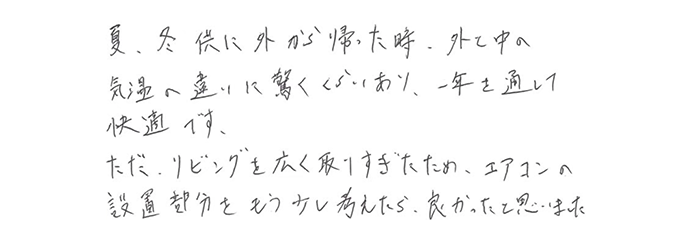 夏、冬 供に外から帰った時、外と中の
気温の違いに驚くくらいあり、一年を通して
快適です、
ただ、リビングを広く取りすぎたため、エアコンの
設置部分をもう少し考えたら、良かったと思いました